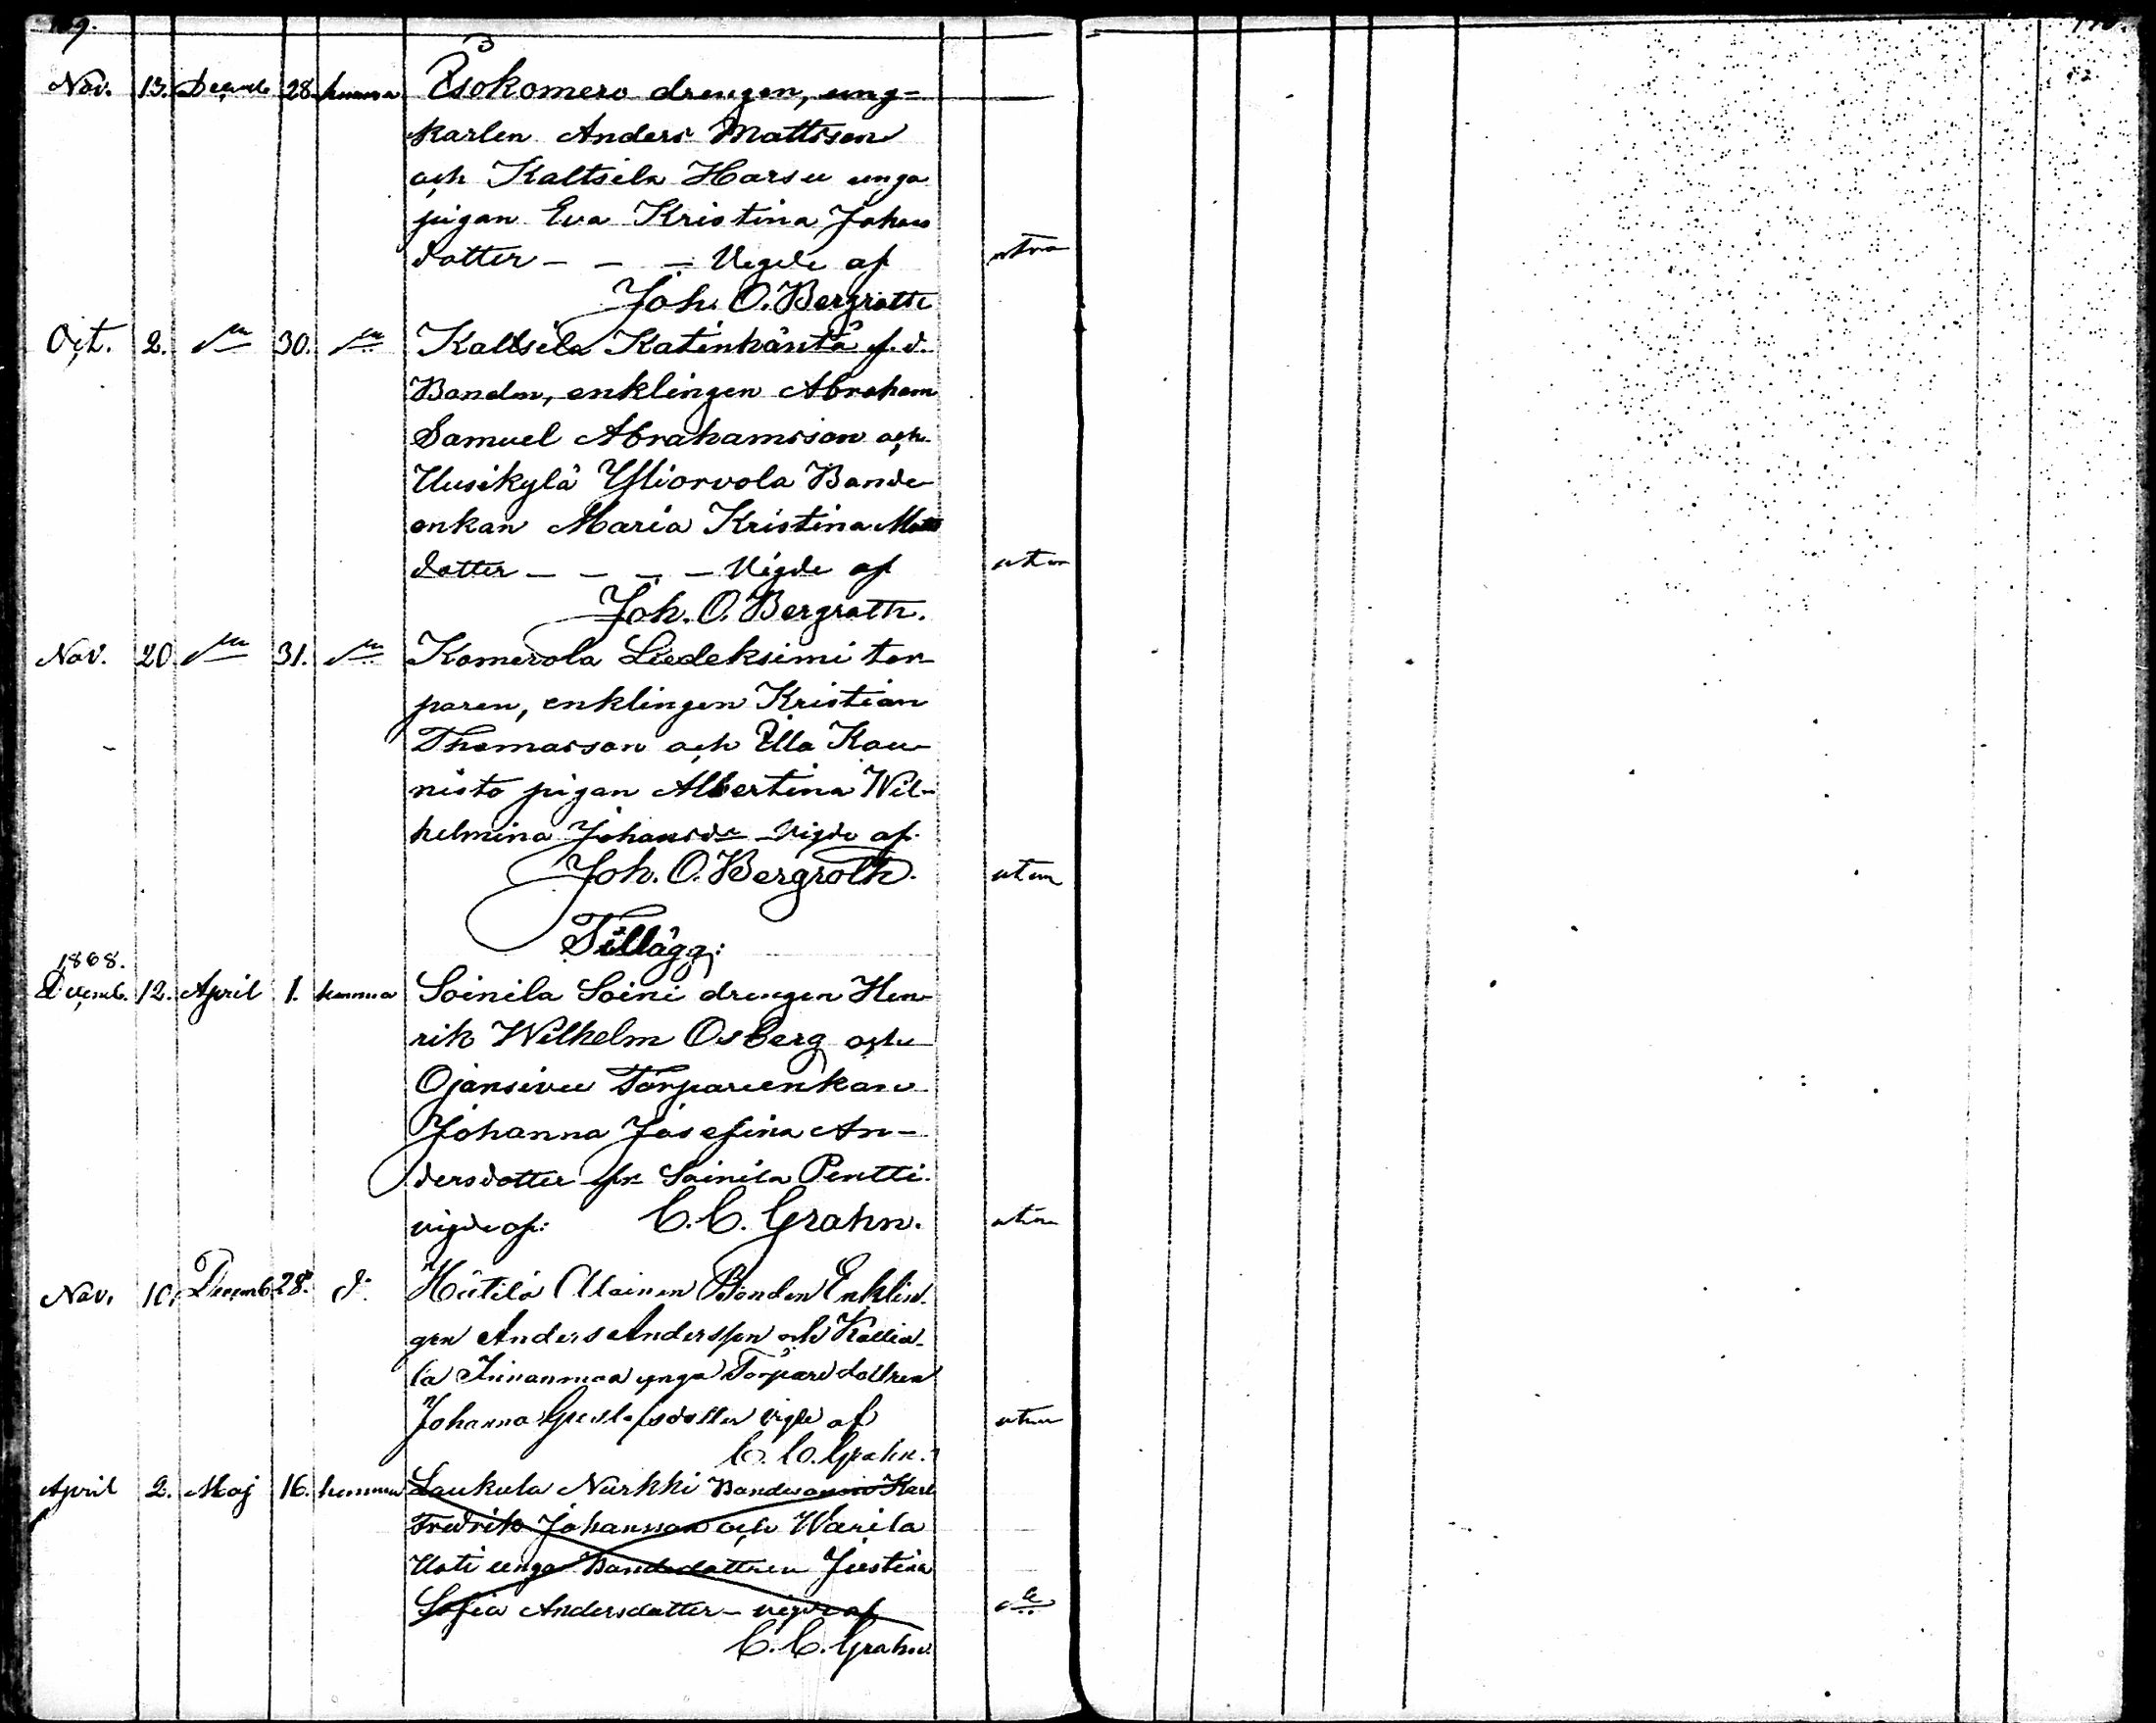 Nov. 13. Decemb 28. hemma Isokomero drengen, ung-
karlen Anders Mattsson
och Kaltsila Harsu unga
pigan Eva Kristina Johans
dotter - - - Vigde af
Joh. O. Bergroth
Oct. 2. 30. Kaltsila Katinhäntä f.d.
Bonden, enklingen Abraham
Samuel Abrahamsson och
Uusikylä Yliorvola Bonde
enkan Maria Kristina Matts
dotter - - - - Vigde af
Joh. O. Bergroth.
Nov. 20. 31. Komerola Liedeksimi tor
paren, enklingen Kristian
Thomasson och Ylla Kau-
nisto pigan Albertina Wil-
helmina Johansdr Vigde af
Joh. O. Bergroth.
Tillägg:
1868.
Decemb. 12. April 1. hemma Soinila Soini drengen Hen
rik Wilhelm Osberg och
Ojansivu Torparenkan
Johanna Josefina An-
dersdotter fr. Soinila Pentti.
vigde af: C. C. Grahn.
Nov. 10. Decemb 28. d:o Alainen Bonden Enklin-
gen Anders Andersson och Kallia-
la unga Torpare dottren
Johanna vigde af
C. C. Grahn.
April 2. Maj 16. hemma Laukula Nurkki Bondesonen Karl
Fredrik Johansson och Warila
Uoti unga Bondedottren Justina
Sofia Andersdotter - vigde af
C. C. Grahn